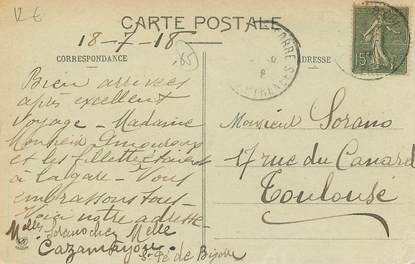 12 €
CARTE POSTALE
18-7-18
CORRESPONDANCE
ADRESSE
85
15
Bien arrivées
après excellent
voyage - Madame
Monsieur Amouroux
et les fillettes étaient
à la gare - Vous
embrassons tous -
Voici notre adresse -
Melles Sorano chez Melle
Cazamayou
St Pé de Bigorre
Monsieur Sorano
17 rue du Canard
Toulouse